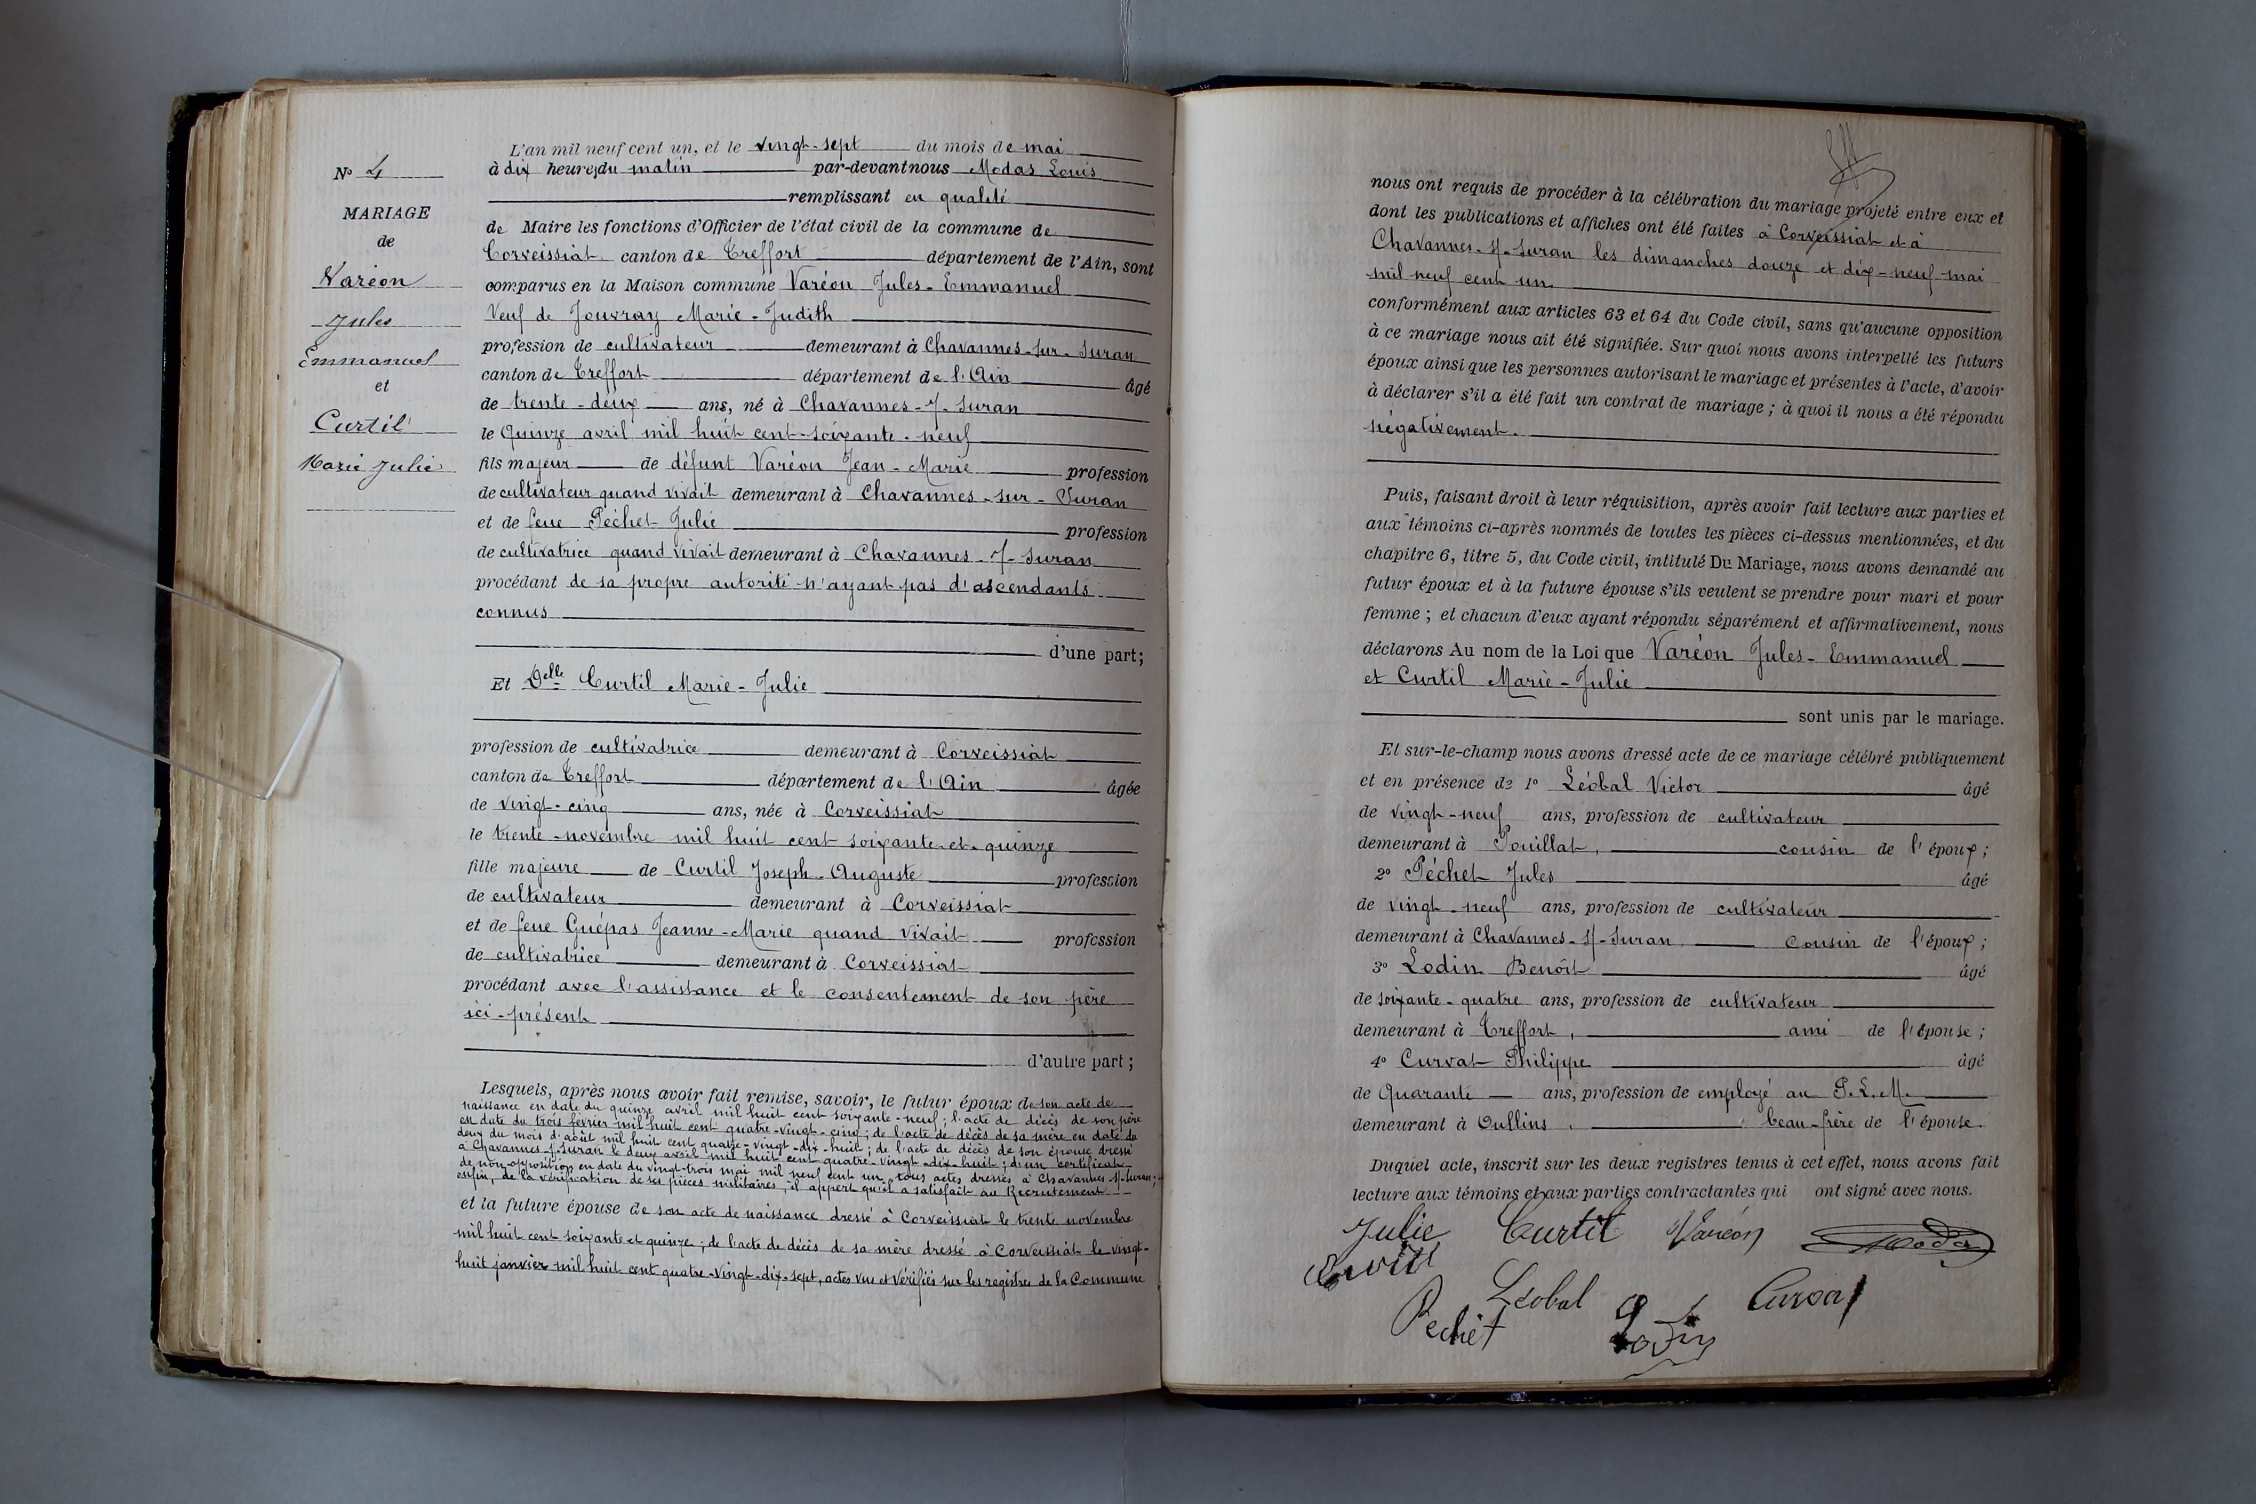 N° 4
MARIAGE
de
Varéon
Jules
Emmanuel
et
Curtil
Marie Julie
L'an mil neuf cent un, et le vingt-sept du mois de mai
à dix heures du matin par-devant nous Modas Louis
remplissant en qualité
de Maire les fonctions d'Officier de l'état civil de la commune de
Corveissiat canton de Treffort département de l'Ain, sont
comparus en la Maison commune Varéon Jules-Emmanuel
Veuf de Jouvray Marie-Judith
profession de cultivateur demeurant à Chavannes-sur-Suran
canton de Treffort département de l'Ain âgé
de trente-deux ans, né à Chavannes-s/-Suran
le Quinze avril mil huit cent-soixante-neuf
fils majeur de défunt Varéon Jean-Marie profession
de cultivateur quand vivait demeurant à Chavannes-sur-Suran
et de feue Péchet Julie profession
de cultivatrice quand vivait demeurant à Chavannes-s/-Suran
procédant de sa propre autorité n'ayant pas d'ascendants
connus
d'une part;
Et Delle Curtil Marie-Julie
profession de cultivatrice demeurant à Corveissiat
canton de Treffort département de l'Ain âgée
de vingt-cinq ans, née à Corveissiat
le trente-novembre mil huit cent soixante-et-quinze
fille majeure de Curtil Joseph-Auguste profession
de cultivateur demeurant à Corveissiat
et de feue Guépas Jeanne-Marie quand vivait profession
de cultivatrice demeurant à Corveissiat
procédant avec l'assistance et le consentement de son père
ici-présent
d'autre part;
Lesquels, après nous avoir fait remise, savoir, le futur époux de son acte de
naissance en date du quinze avril mil huit cent soixante-neuf; l'acte de décès de son père
en date du trois février mil huit cent quatre-vingt-cinq; de l'acte de décès de sa mère en date du
deux du mois d'août mil huit cent quatre-vingt-dix-huit; de l'acte de décès de son épouse dressé
à Chavannes-s/-Suran le deux avril mil huit cent quatre-vingt-dix-huit; d'un certificat
de non-opposition en date du vingt-trois mai mil neuf cent un, tous actes dressés à Chavannes s/-Suran;
enfin, de la vérification de ses pièces militaires, il appert qu'il a satisfait au Recrutement
et la future épouse de son acte de naissance dressé à Corveissiat le trente novembre
mil huit cent soixante et quinze; de l'acte de décès de sa mère dressé à Corveissiat le vingt-
huit janvier mil huit cent quatre-vingt-dix-sept, actes vus et vérifiés sur les registres de la Commune
nous ont requis de procéder à la célébration du mariage projeté entre eux et
dont les publications et affiches ont été faites à Corveissiat et à
Chavannes-s/-Suran les dimanches douze et dix-neuf mai
mil neuf cent un
conformément aux articles 63 et 64 du Code civil, sans qu'aucune opposition
à ce mariage nous ait été signifiée. Sur quoi nous avons interpellé les futurs
époux ainsi que les personnes autorisant le mariage et présentes à l'acte, d'avoir
à déclarer s'il a été fait un contrat de mariage; à quoi il nous a été répondu
négativement.
Puis, faisant droit à leur réquisition, après avoir fait lecture aux parties et
aux témoins ci-après nommés de toutes les pièces ci-dessus mentionnées, et du
chapitre 6, titre 5, du Code civil, intitulé Du Mariage, nous avons demandé au
futur époux et à la future épouse s'ils veulent se prendre pour mari et pour
femme; et chacun d'eux ayant répondu séparément et affirmativement, nous
déclarons Au nom de la Loi que Varéon Jules-Emmanuel
et Curtil Marie-Julie
sont unis par le mariage.
Et sur-le-champ nous avons dressé acte de ce mariage célébré publiquement
et en présence de 1° Léobal Victor âgé
de vingt-neuf ans, profession de cultivateur
demeurant à Pouillat, cousin de l'époux;
2° Péchet Jules âgé
de vingt-neuf ans, profession de cultivateur
demeurant à Chavannes-s/-Suran cousin de l'époux;
3° Lodin Benoît âgé
de soixante-quatre ans, profession de cultivateur
demeurant à Treffort, ami de l'épouse;
4° Curvat Philippe âgé
de Quarante ans, profession de employé au P.L.M.
demeurant à Oullins, beau-frère de l'épouse.
Duquel acte, inscrit sur les deux registres tenus à cet effet, nous avons fait
lecture aux témoins et aux parties contractantes qui ont signé avec nous.
Julie Curtil Varéon Modas
Léobal Curvat
Pechet Lodin